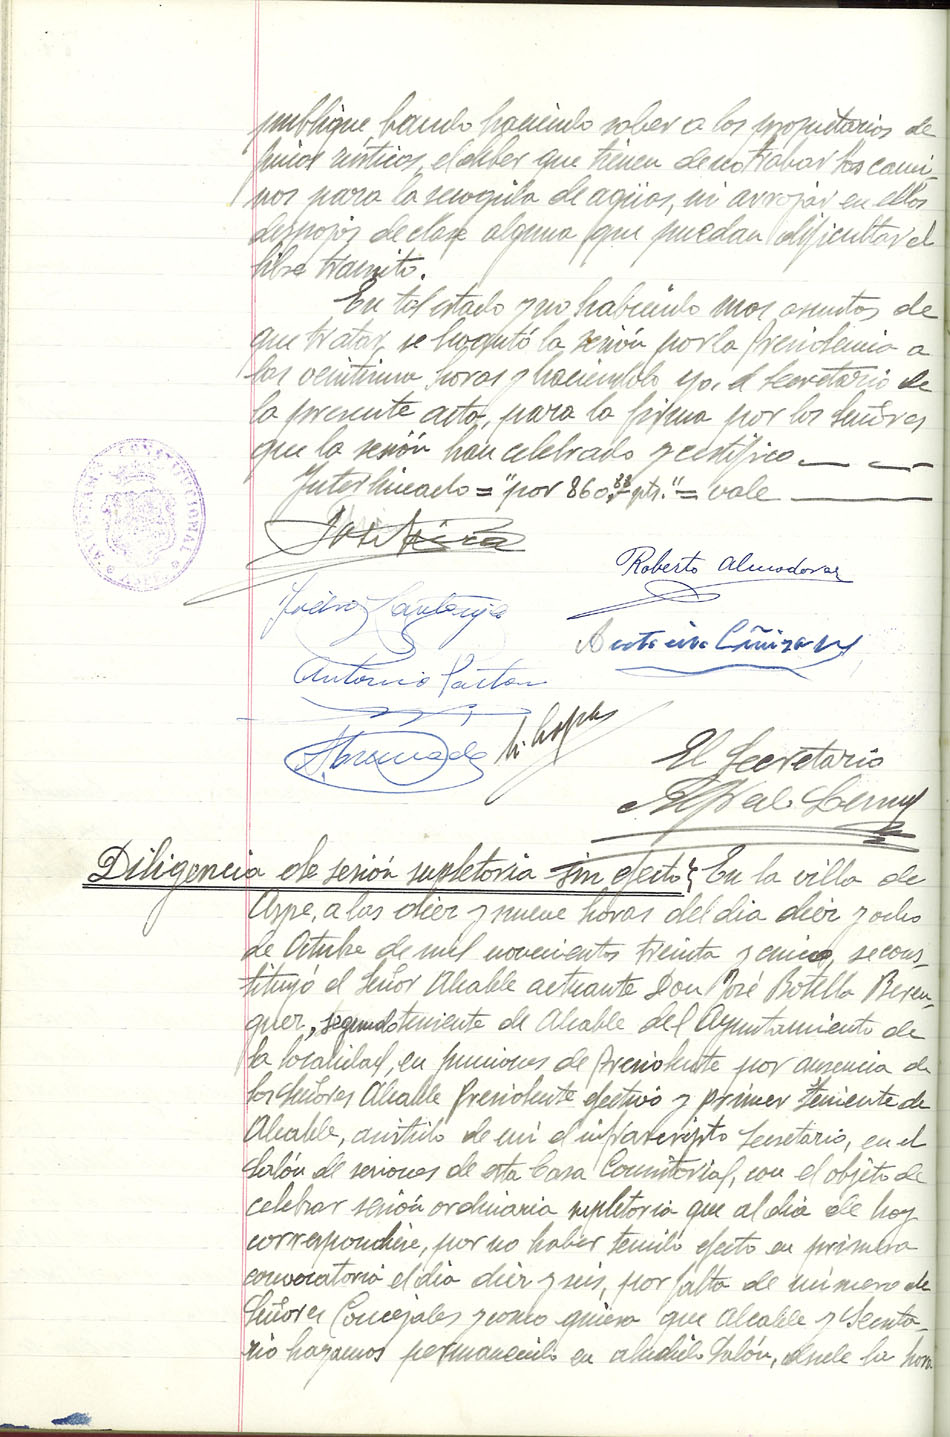 publique bando haciendo saber a los propietarios de
fincas rústicas, el deber que tienen de no trabar los cami-
nos para la recogida de aguas, ni arrojar en ellos
despojos de clase alguna que puedan dificultar el
libre tránsito.
En tal estado y no habiendo mas asuntos de
que tratar, se levantó la sesión por la Presidencia a
las veintiuna horas y haciendolo yo, el Secretario de
la presente acta, para la firma por los Señores
que la sesión han celebrado y certifico.
Interlineado = "por 860,88 pts." = vale
Roberto Almodovar
Isidro Santonja
Antonio Cañizares
Antonio Pastor
El Secretario
Diligencia de sesión supletoria sin efecto } En la villa de
Aspe, a las diez y nueve horas del dia diez y ocho
de Octubre de mil novecientos treinta y cinco, se cons-
tituyó el Señor Alcalde actuante Don José Botella Beren-
guer, segundo teniente de Alcalde del Ayuntamiento de
la localidad, en funciones de Presidente por ausencia de
los Señores Alcalde Presidente efectivo y primer teniente de
Alcalde, asistido de mí el infrascripto Secretario, en el
Salón de sesiones de esta Casa Consistorial, con el objeto de
celebrar sesión ordinaria supletoria que al dia de hoy
correspondiese, por no haber tenido efecto en primera
convocatoria el dia diez y seis, por falta de número de
Señores Concejales y como quiera que Alcalde y Secreta-
rio hayamos permanecido en aludido Salón, desde la hora